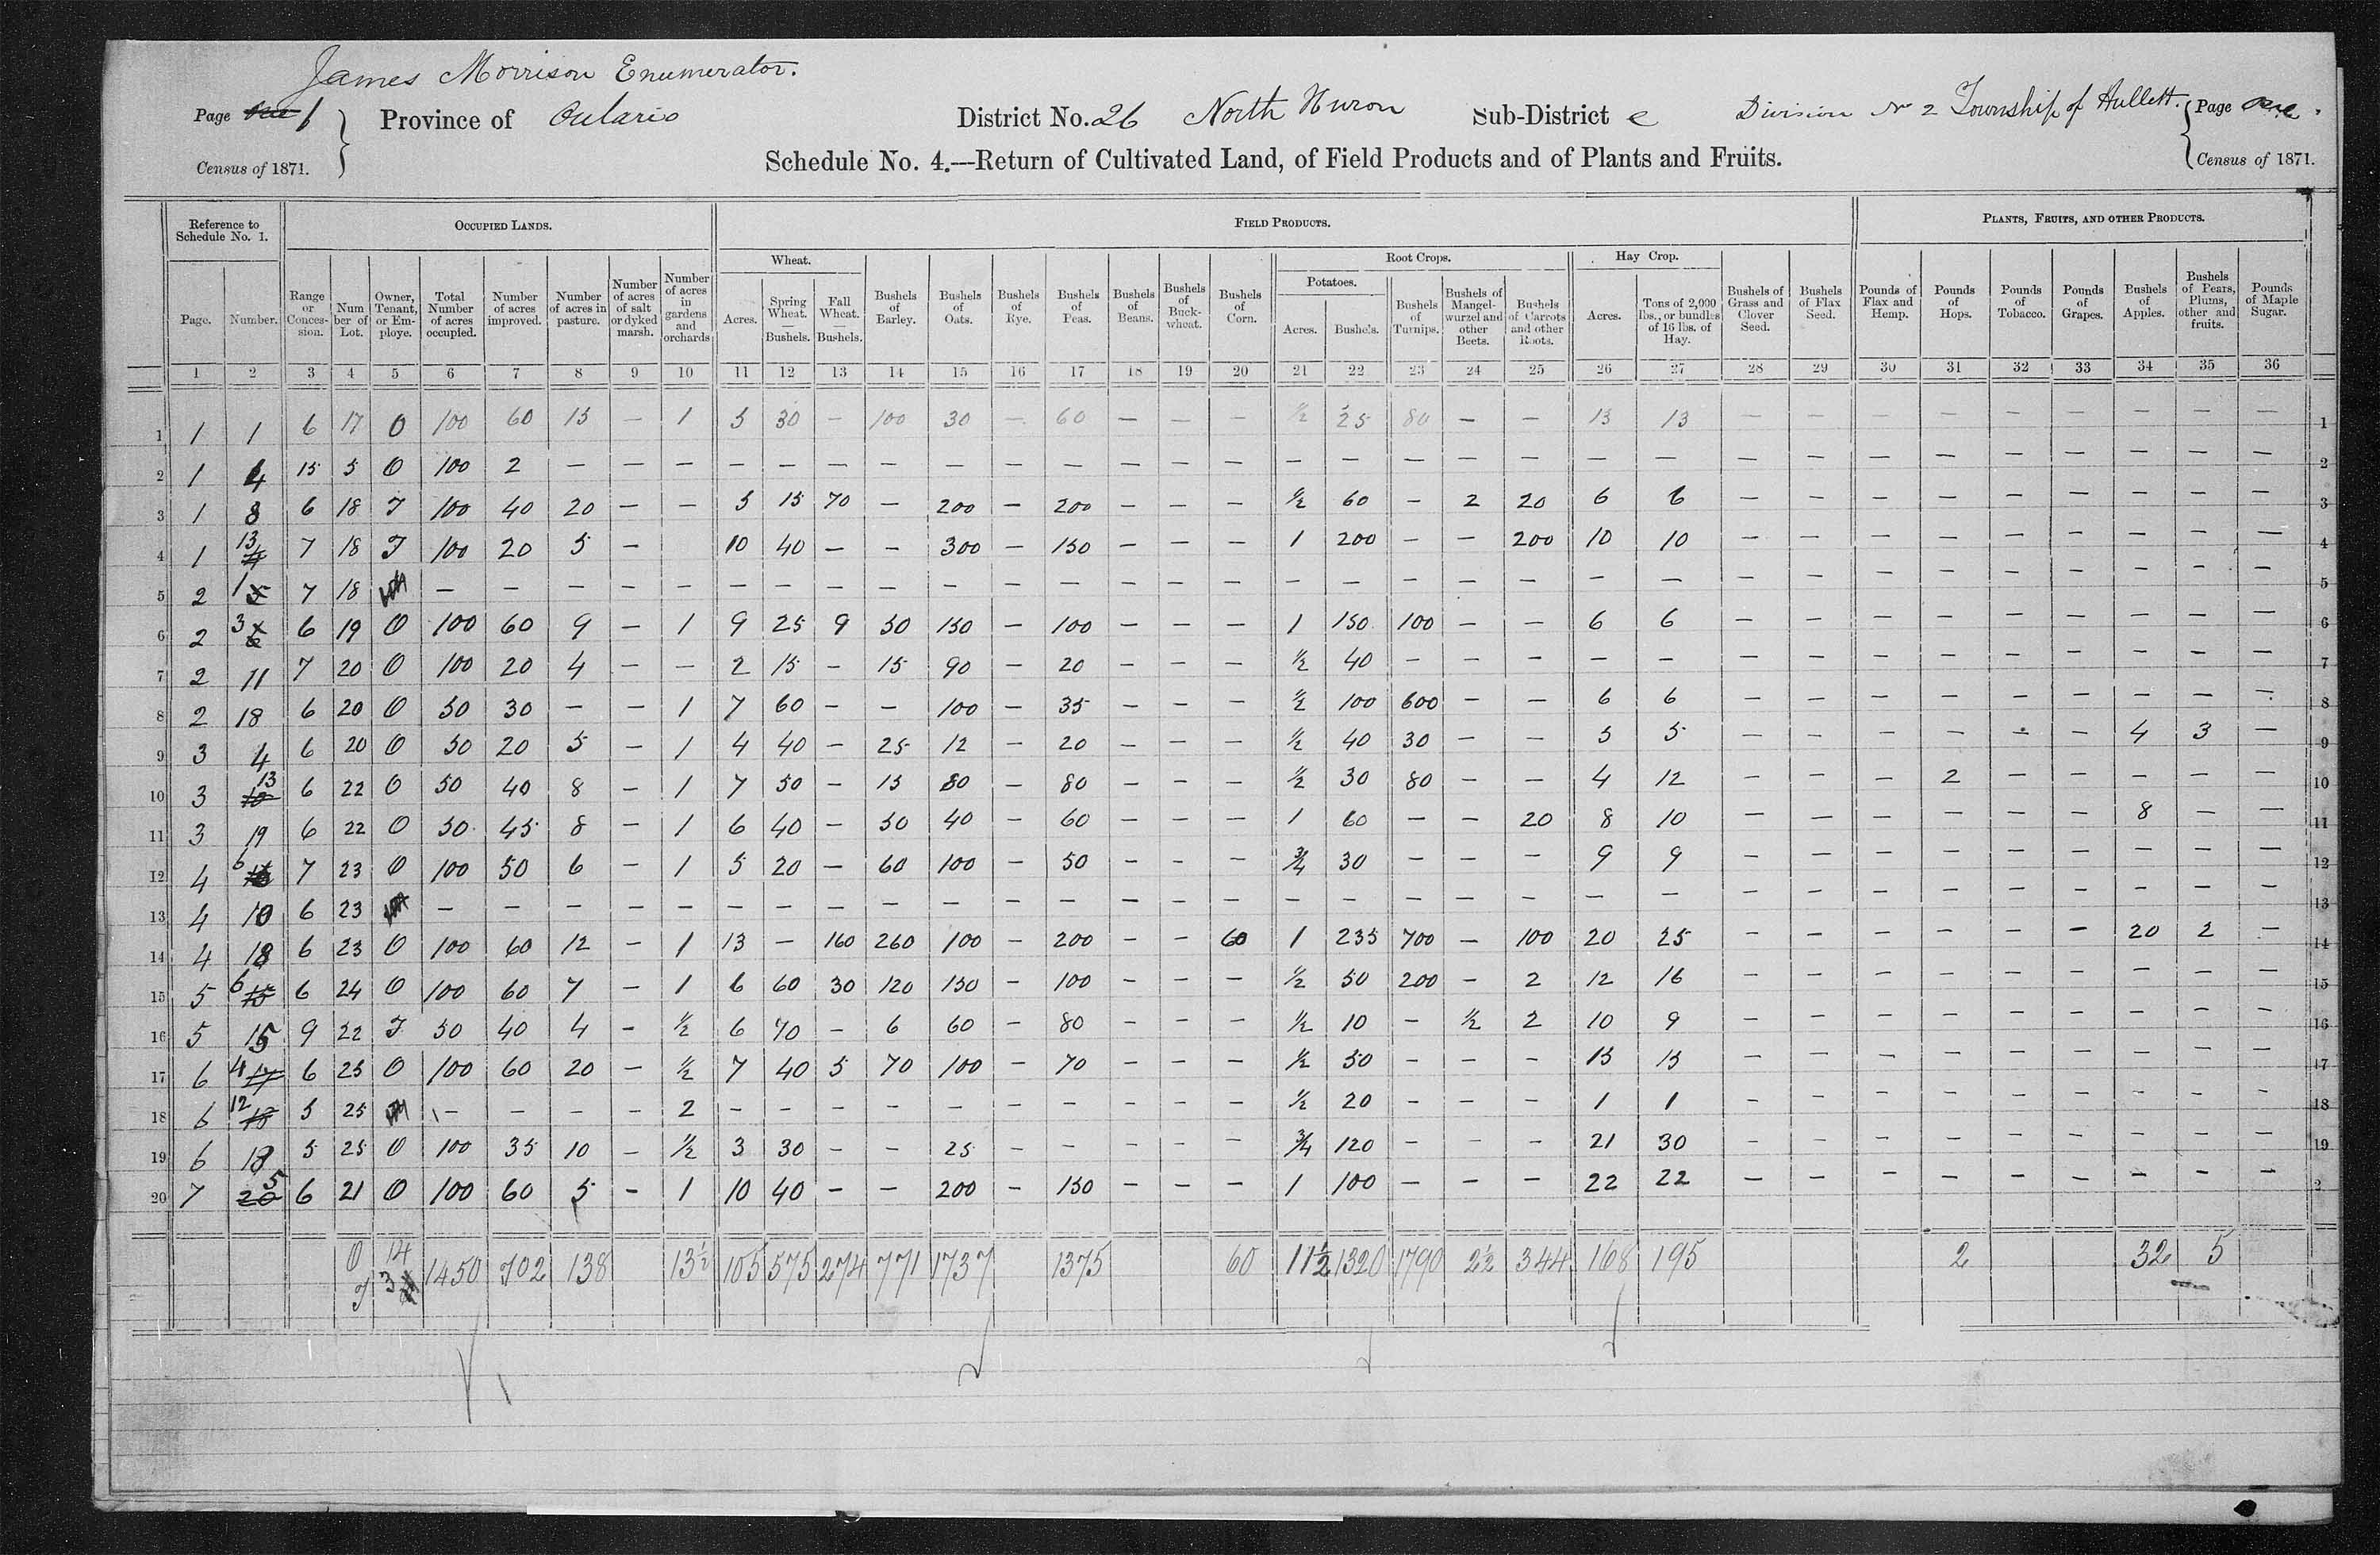 James Morrison Enumerator.
Page 1 Province of Ontario District No. 26 North Huron Sub-District e Division No 2 Township of Hullett. Page one.
Census of 1871. Schedule No. 4.—Return of Cultivated Land, of Field Products and of Plants and Fruits. Census of 1871.
Reference to Schedule No. 1. OCCUPIED LANDS. FIELD PRODUCTS. PLANTS, FRUITS, AND OTHER PRODUCTS.
Wheat. Root Crops. Hay Crop.
Potatoes.
Page. Number. Range or Conces-sion. Num ber of Lot. Owner, Tenant, or Em-ploye. Total Number of acres occupied. Number of acres improved. Number of acres in pasture. Number of acres of salt or dyked marsh. Number of acres in gardens and orchards Acres. Spring Wheat. — Bushels. Fall Wheat. — Bushels. Bushels of Barley. Bushels of Oats. Bushels of Rye. Bushels of Peas. Bushels of Beans. Bushels of Buck-wheat. Bushels of Corn. Acres. Bushels. Bushels of Turnips. Bushels of Mangel-wurzel and other Beets. Bushels of Carrots and other Roots. Acres. Tons of 2,000 lbs., or bundles of 16 lbs. of Hay. Bushels of Grass and Clover Seed. Bushels of Flax Seed. Pounds of Flax and Hemp. Pounds of Hops. Pounds of Tobacco. Pounds of Grapes. Bushels of Apples. Bushels of Pears, Plums, other and fruits. Pounds of Maple Sugar.
1 2 3 4 5 6 7 8 9 10 11 12 13 14 15 16 17 18 19 20 21 22 23 24 25 26 27 28 29 30 31 32 33 34 35 36
1 1 1 6 17 O 100 60 15 — 1 5 30 — 100 30 — 60 — — — ½ 25 80 — — 13 13 — — — — — — — — — 1
2 1 4 15 5 O 100 2 — — — — — — — — — — — — — — — — — — — — — — — — — — — — — 2
3 1 8 6 18 T 100 40 20 — — 5 15 70 — 200 — 200 — — — ½ 60 — 2 20 6 6 — — — — — — — — — 3
4 1 13 7 18 T 100 20 5 — 10 40 — — 300 — 150 — — — 1 200 — — 200 10 10 — — — — — — — — — 4
5 2 1 7 18 — — — — — — — — — — — — — — — — — — — — — — — — — — — — — — — 5
6 2 3 6 19 O 100 60 9 — 1 9 25 9 50 150 — 100 — — — 1 150 100 — — 6 6 — — — — — — — — — 6
7 2 11 7 20 O 100 20 4 — — 2 15 — 15 90 — 20 — — — ½ 40 — — — — — — — — — — — — — — 7
8 2 18 6 20 O 50 30 — — 1 7 60 — — 100 — 35 — — — ½ 100 600 — — 6 6 — — — — — — — — — 8
9 3 4 6 20 O 50 20 5 — 1 4 40 — 25 12 — 20 — — — ½ 40 30 — — 5 5 — — — — — — 4 3 — 9
10 3 13 6 22 O 50 40 8 — 1 7 50 — 15 80 — 80 — — — ½ 30 80 — — 4 12 — — — 2 — — — — — 10
11 3 19 6 22 O 50 45 8 — 1 6 40 — 50 40 — 60 — — — 1 60 — — 20 8 10 — — — — — — 8 — — 11
12 4 6 7 23 O 100 50 6 — 1 5 20 — 60 100 — 50 — — — ¾ 30 — — — 9 9 — — — — — — — — — 12
13 4 10 6 23 — — — — — — — — — — — — — — — — — — — — — — — — — — — — — — — 13
14 4 18 6 23 O 100 60 12 — 1 13 — 160 260 100 — 200 — — 60 1 235 700 — 100 20 25 — — — — — — 20 2 — 14
15 5 6 6 24 O 100 60 7 — 1 6 60 30 120 150 — 100 — — — ½ 50 200 — 2 12 16 — — — — — — — — — 15
16 5 15 9 22 T 50 40 4 — ½ 6 70 — 6 60 — 80 — — — ½ 10 — ½ 2 10 9 — — — — — — — — — 16
17 6 4 6 25 O 100 60 20 — ½ 7 40 5 70 100 — 70 — — — ½ 50 — — — 15 15 — — — — — — — — — 17
18 6 12 5 25 — — — — 2 — — — — — — — — — — ½ 20 — — — 1 1 — — — — — — — — — 18
19 6 18 5 25 O 100 35 10 — ½ 3 30 — — 25 — — — — — ¾ 120 — — — 21 30 — — — — — — — — — 19
20 7 5 6 21 O 100 60 5 — 1 10 40 — — 200 — 150 — — — 1 100 — — — 22 22 — — — — — — — — — 2
O 14 1450 702 138 13½ 105 575 274 771 1737 1375 60 11½ 1320 1790 2½ 344 168 195 2 32 5
T 3